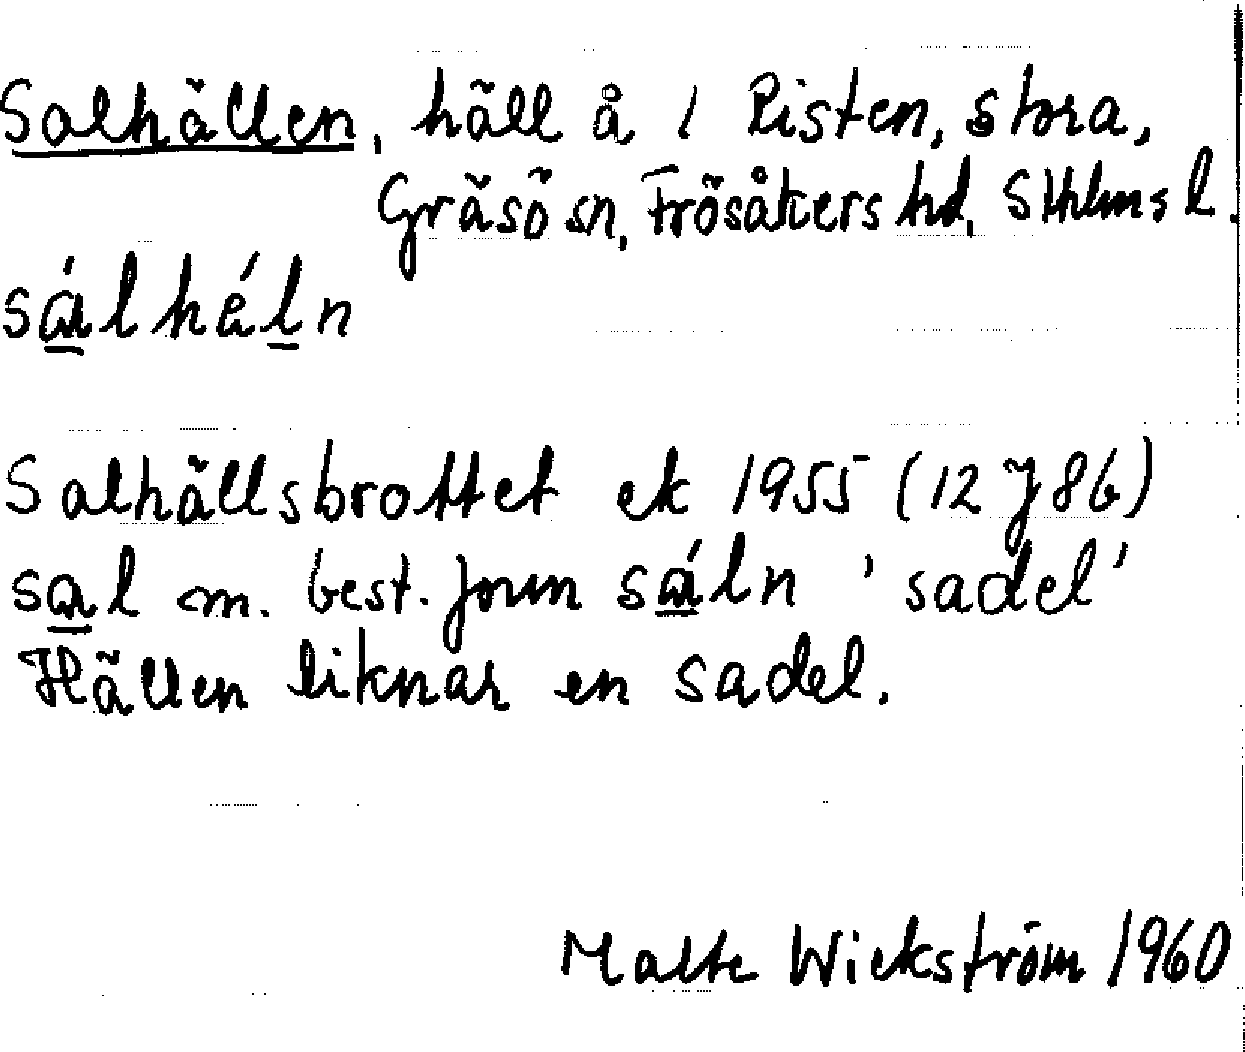 Salhällen, häll å / Risten, stora,
Gräsö sn, Frösåkers hd, Sthlms l.
sálhéln
Salhällsbrottet ek 1955 (12 J 8b)
sal m. best. form sáln 'sadel'
Hällen liknar en sadel.
Malte Wickström 1960